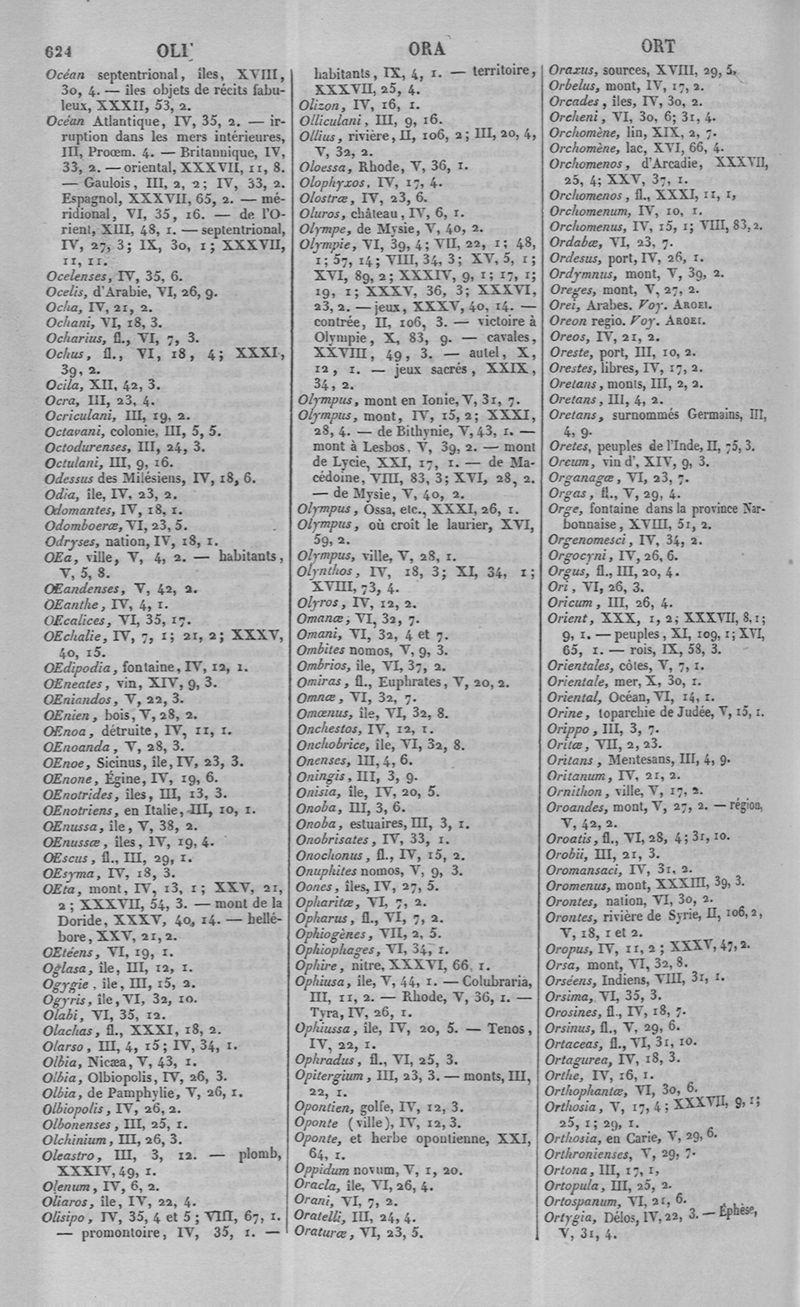 624 OLI ORA ORT
Océan septentrional, îles, XVIII,
30, 4. — îles objets de récits fabu-
leux, XXXII, 53, 2.
Océan Atlantique, IV, 35, 2. — ir-
ruption dans les mers intérieures,
III, Proœm. 4. — Britannique, IV,
33, 2. — oriental, XXXVII, 11, 8.
— Gaulois, III, 2, 2; IV, 33, 2.
Espagnol, XXXVII, 65, 2. — mé-
ridional, VI, 35, 16. — de l'O-
rient, XIII, 48, 1. — septentrional,
IV, 27, 3; IX, 30, 1; XXXVII,
11, 11.
Ocelenses, IV, 35, 6.
Ocelis, d'Arabie, VI, 26, 9.
Ocha, IV, 21, 2.
Ochani, VI, 18, 3.
Ocharius, fl., VI, 7, 3.
Ochus, fl., VI, 18, 4; XXXI,
39, 2.
Ocila, XII, 42, 3.
Ocra, III, 23, 4.
Ocriculani, III, 19, 2.
Octavani, colonie, III, 5, 5.
Octodurenses, III, 24, 3.
Octulani, III, 9, 16.
Odessus des Milésiens, IV, 18, 6.
Odia, île, IV, 23, 2.
Odomantes, IV, 18, 1.
Odomboeræ, VI, 23, 5.
Odryses, nation, IV, 18, 1.
OEa, ville, V, 4, 2. — habitants,
V, 5, 8.
OEandenses, V, 42, 2.
OEanthe, IV, 4, 1.
OEcalices, VI, 35, 17.
OEchalie, IV, 7, 1; 21, 2; XXXV,
40, 15.
OEdipodia, fontaine, IV, 12, 1.
OEneates, vin, XIV, 9, 3.
OEniandos, V, 22, 3.
OEnien, bois, V, 28, 2.
OEnoa, détruite, IV, 11, 1.
OEnoanda, V, 28, 3.
OEnoe, Sicinus, île, IV, 23, 3.
OEnone, Égine, IV, 19, 6.
OEnotrides, îles, III, 13, 3.
OEnotriens, en Italie, III, 10, 1.
OEnussa, île, V, 38, 2.
OEnussæ, îles, IV, 19, 4.
OEscus, fl., III, 29, 1.
OEsyma, IV, 18, 3.
OEta, mont, IV, 13, 1; XXV, 21,
2; XXXVII, 54, 3. — mont de la
Doride, XXXV, 40, 14. — hellé-
bore, XXV, 21, 2.
OEtéens, VI, 19, 1.
Oglasa, île, III, 12, 1.
Ogygie, île, III, 15, 2.
Ogyris, île, VI, 32, 10.
Olabi, VI, 35, 12.
Olachas, fl., XXXI, 18, 2.
Olarso, III, 4, 15; IV, 34, 1.
Olbia, Nicæa, V, 43, 1.
Olbia, Olbiopolis, IV, 26, 3.
Olbia, de Pamphylie, V, 26, 1.
Olbiopolis, IV, 26, 2.
Olbonenses, III, 25, 1.
Olchinium, III, 26, 3.
Oleastro, III, 3, 12. — plomb,
XXXIV, 49, 1.
Olenum, IV, 6, 2.
Oliaros, île, IV, 22, 4.
Olisipo, IV, 35, 4 et 5; VIII, 67, 1.
— promontoire, IV, 35, 1. —
habitants, IX, 4, 1. — territoire,
XXXVII, 25, 4.
Olizon, IV, 16, 1.
Olliculani, III, 9, 16.
Ollius, rivière, II, 106, 2; III, 20, 4,
V, 32, 2.
Oloessa, Rhode, V, 36, 1.
Olophyxos, IV, 17, 4.
Olostræ, IV, 23, 6.
Oluros, château, IV, 6, 1.
Olympe, de Mysie, V, 40, 2.
Olympie, VI, 39, 4; VII, 22, 1; 48,
1; 57, 14; VIII, 34, 3; XV, 5, 1;
XVI, 89, 2; XXXIV, 9, 1; 17, 1;
19, 1; XXXV, 36, 3; XXXVI,
23, 2. — jeux, XXXV, 40, 14. —
contrée, II, 106, 3. — victoire à
Olympie, X, 83, 9. — cavales,
XXVIII, 49, 3. — autel, X,
12, 1. — jeux sacrés, XXIX,
34, 2.
Olympus, mont en Ionie, V, 31, 7.
Olympus, mont, IV, 15, 2; XXXI,
28, 4. — de Bithynie, V, 43, 1. —
mont à Lesbos, V, 39, 2. — mont
de Lycie, XXI, 17, 1. — de Ma-
cédoine, VIII, 83, 3; XVI, 28, 2.
— de Mysie, V, 40, 2.
Olympus, Ossa, etc., XXXI, 26, 1.
Olympus, où croît le laurier, XVI,
59, 2.
Olympus, ville, V, 28, 1.
Olynthos, IV, 18, 3; XI, 34, 1;
XVIII, 73, 4.
Olyros, IV, 12, 2.
Omanæ, VI, 32, 7.
Omani, VI, 32, 4 et 7.
Ombites nomos, V, 9, 3.
Ombrios, île, VI, 37, 2.
Omiras, fl., Euphrates, V, 20, 2.
Omnæ, VI, 32, 7.
Omœnus, île, VI, 32, 8.
Onchestos, IV, 12, 1.
Onchobrice, île, VI, 32, 8.
Onenses, III, 4, 6.
Oningis, III, 3, 9.
Onisia, île, IV, 20, 5.
Onoba, III, 3, 6.
Onoba, estuaires, III, 3, 1.
Onobrisates, IV, 33, 1.
Onochonus, fl., IV, 15, 2.
Onuphites nomos, V, 9, 3.
Oones, îles, IV, 27, 5.
Opharitæ, VI, 7, 2.
Opharus, fl., VI, 7, 2.
Ophiogènes, VII, 2, 5.
Ophiophages, VI, 34, 1.
Ophire, nitre, XXXVI, 66, 1.
Ophiusa, île, V, 44, 1. — Colubraria,
III, 11, 2. — Rhode, V, 36, 1. —
Tyra, IV, 26, 1.
Ophiussa, île, IV, 20, 5. — Tenos,
IV, 22, 1.
Ophradus, fl., VI, 25, 3.
Opitergium, III, 23, 3. — monts, III,
22, 1.
Opontien, golfe, IV, 12, 3.
Oponte (ville), IV, 12, 3.
Oponte, et herbe opontienne, XXI,
64, 1.
Oppidum novum, V, 1, 20.
Oracla, île, VI, 26, 4.
Orani, VI, 7, 2.
Oratelli, III, 24, 4.
Oraturæ, VI, 23, 5.
Oraxus, sources, XVIII, 29, 5,
Orbelus, mont, IV, 17, 2.
Orcades, îles, IV, 30, 2.
Orcheni, VI, 30, 6; 31, 4.
Orchomène, lin, XIX, 2, 7.
Orchomène, lac, XVI, 66, 4.
Orchomenos, d'Arcadie, XXXVII,
25, 4; XXV, 37, 1.
Orchomenos, fl., XXXI, 11, 1,
Orchomenum, IV, 10, 1.
Orchomenus, IV, 15, 1; VIII, 83, 2.
Ordabæ, VI, 23, 7.
Ordesus, port, IV, 26, 1.
Ordymnus, mont, V, 39, 2.
Oreges, mont, V, 27, 2.
Orei, Arabes. Voy. AROEI.
Oreon regio. Voy. AROEI.
Oreos, IV, 21, 2.
Oreste, port, III, 10, 2.
Orestes, libres, IV, 17, 2.
Oretans, monts, III, 2, 2.
Oretans, III, 4, 2.
Oretans, surnommés Germains, III,
4, 9.
Oretes, peuples de l'Inde, II, 75, 3.
Oreum, vin d', XIV, 9, 3.
Organagæ, VI, 23, 7.
Orgas, fl., V, 29, 4.
Orge, fontaine dans la province Nar-
bonnaise, XVIII, 51, 2.
Orgenomesci, IV, 34, 2.
Orgocyni, IV, 26, 6.
Orgus, fl., III, 20, 4.
Ori, VI, 26, 3.
Oricum, III, 26, 4.
Orient, XXX, 1, 2; XXXVII, 8, 1;
9, 1. — peuples, XI, 109, 1; XVI,
65, 1. — rois, IX, 58, 3.
Orientales, côtes, V, 7, 1.
Orientale, mer, X, 30, 1.
Oriental, Océan, VI, 14, 1.
Orine, toparchie de Judée, V, 15, 1.
Orippo, III, 3, 7.
Oritæ, VII, 2, 23.
Oritans, Mentesans, III, 4, 9.
Oritanum, IV, 21, 2.
Ornithon, ville, V, 17, 2.
Oroandes, mont, V, 27, 2. — région,
V, 42, 2.
Oroatis, fl., VI, 28, 4; 31, 10.
Orobii, III, 21, 3.
Oromansaci, IV, 31, 2.
Oromenus, mont, XXXIII, 39, 3.
Orontes, nation, VI, 30, 2.
Orontes, rivière de Syrie, II, 106, 2,
V, 18, 1 et 2.
Oropus, IV, 11, 2; XXXV, 47, 2.
Orsa, mont, VI, 32, 8.
Orséens, Indiens, VIII, 31, 1.
Orsima, VI, 35, 3.
Orosines, fl., IV, 18, 7.
Orsinus, fl., V, 29, 6.
Ortaceas, fl., VI, 31, 10.
Ortagurea, IV, 18, 3.
Orthe, IV, 16, 1.
Orthophantæ, VI, 30, 6.
Orthosia, V, 17, 4; XXXVII, 9, 1;
25, 1; 29, 1.
Orthosia, en Carie, V, 29, 6.
Orthronienses, V, 29, 7.
Ortona, III, 17, 1,
Ortopula, III, 25, 2.
Ortospanum, VI, 21, 6.
Ortygia, Délos, IV, 22, 3. — Éphèse,
V, 31, 4.